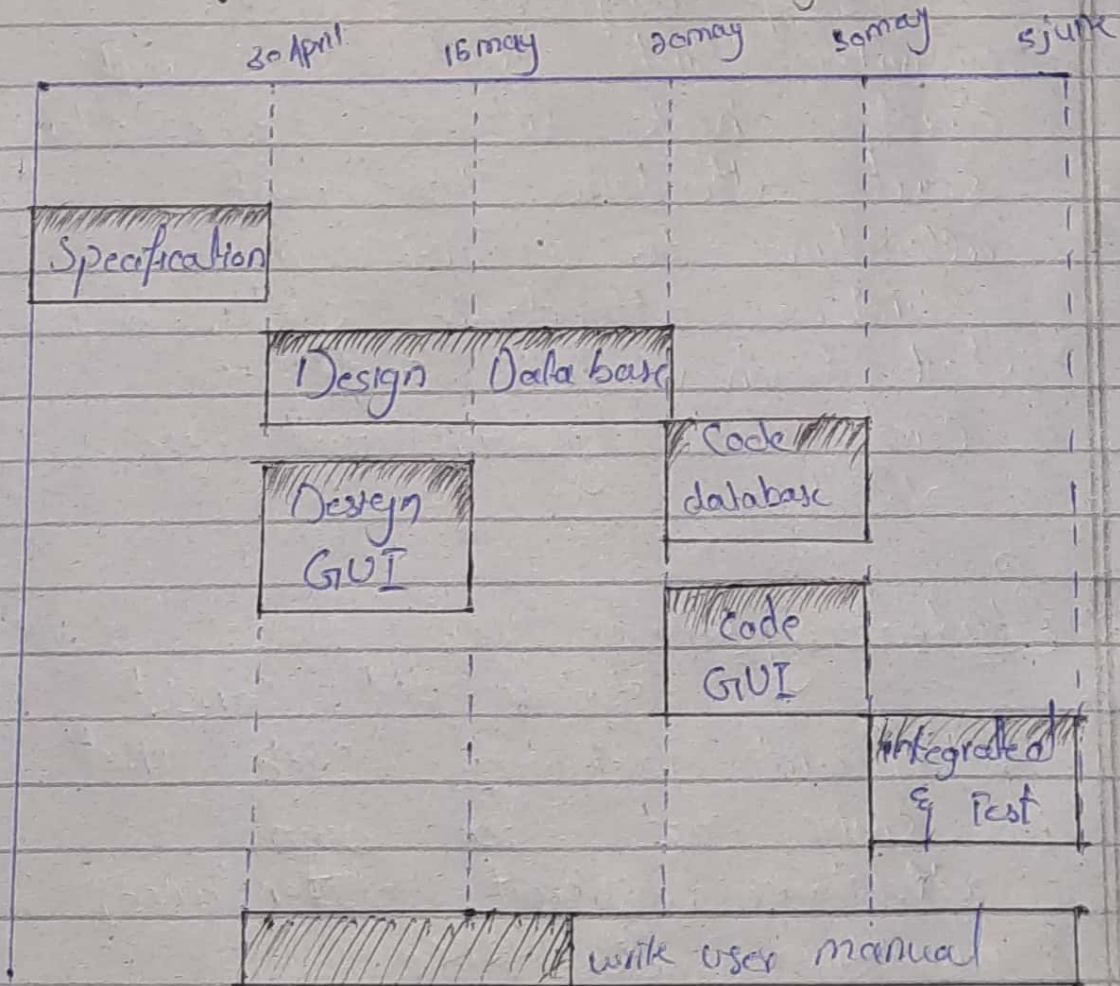 30 April 15 may 20 may 30 may 5 june
Specification
Design Data base
Code
database
Design
GUI
Code
GUI
integrated
& Test
write user manual